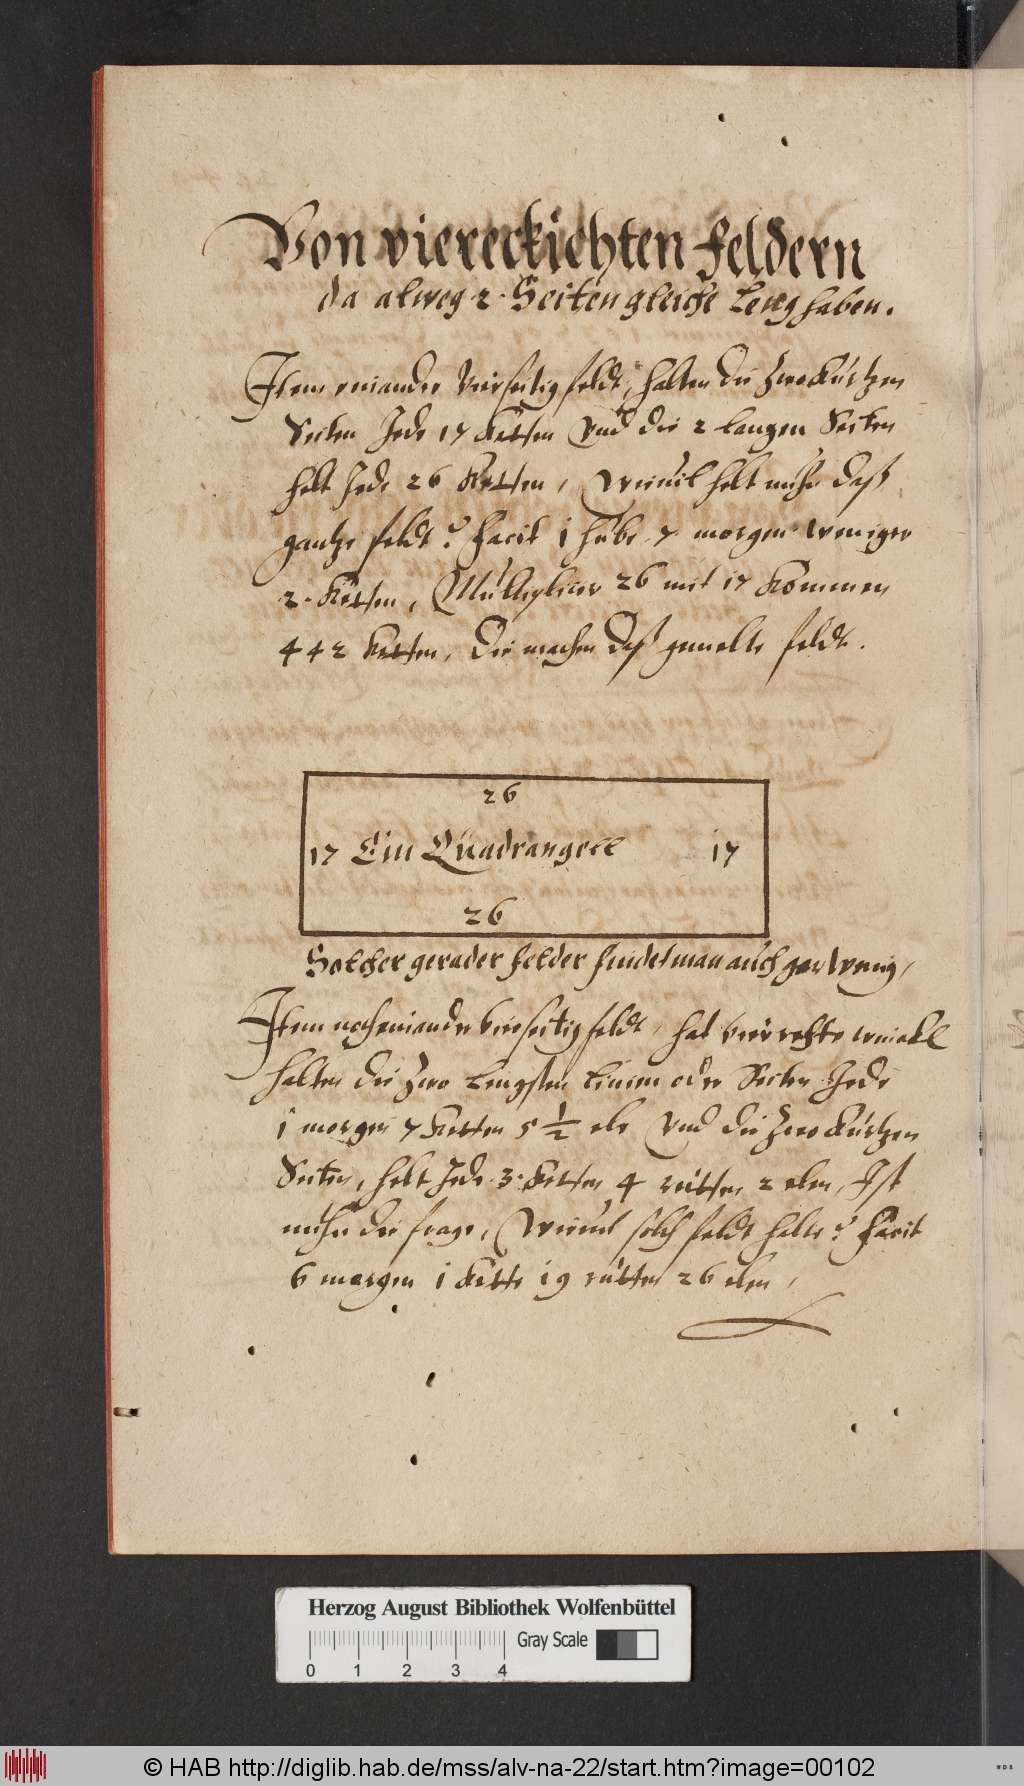 Von viereckichten Feldern
da alweg 2. Seiten gleiche Leng haben.
Item ein ander vierseitig feldt, halten die zwo kürtzen
Seiten Jede 17 Ketten Vnd die 2 Langen Seiten
helt Jede 26 Ketten, Wieuil helt nuhn daß
gantze feldt? Facit 1 hube 7 morgen weniger
2. Ketten, Multiplicir 26 mit 17 Kommen
442 Ketten, die machen daß gemelte feldt.
26
17 Ein Quadrangell 17
26
Solcher gerader felder findet man auch gar wenig,
Item noch ein ander vierseitig feldt, hat vier rechte winckl
halten die zwo Lengsten Linien oder Seiten Jede
1 morgen 7 Ketten 5 1/2 ele Vnd die zwo kürtzen
Seiten, helt Jede 3. Ketten 4 rutten 2 elen, Ist
nuhn die frage, Wieuil solch feldt halte? Facit
6 morgen 1 Kette 19 rutten 26 elen,
Herzog August Bibliothek Wolfenbüttel
Gray Scale
0 1 2 3 4
© HAB http://diglib.hab.de/mss/alv-na-22/start.htm?image=00102